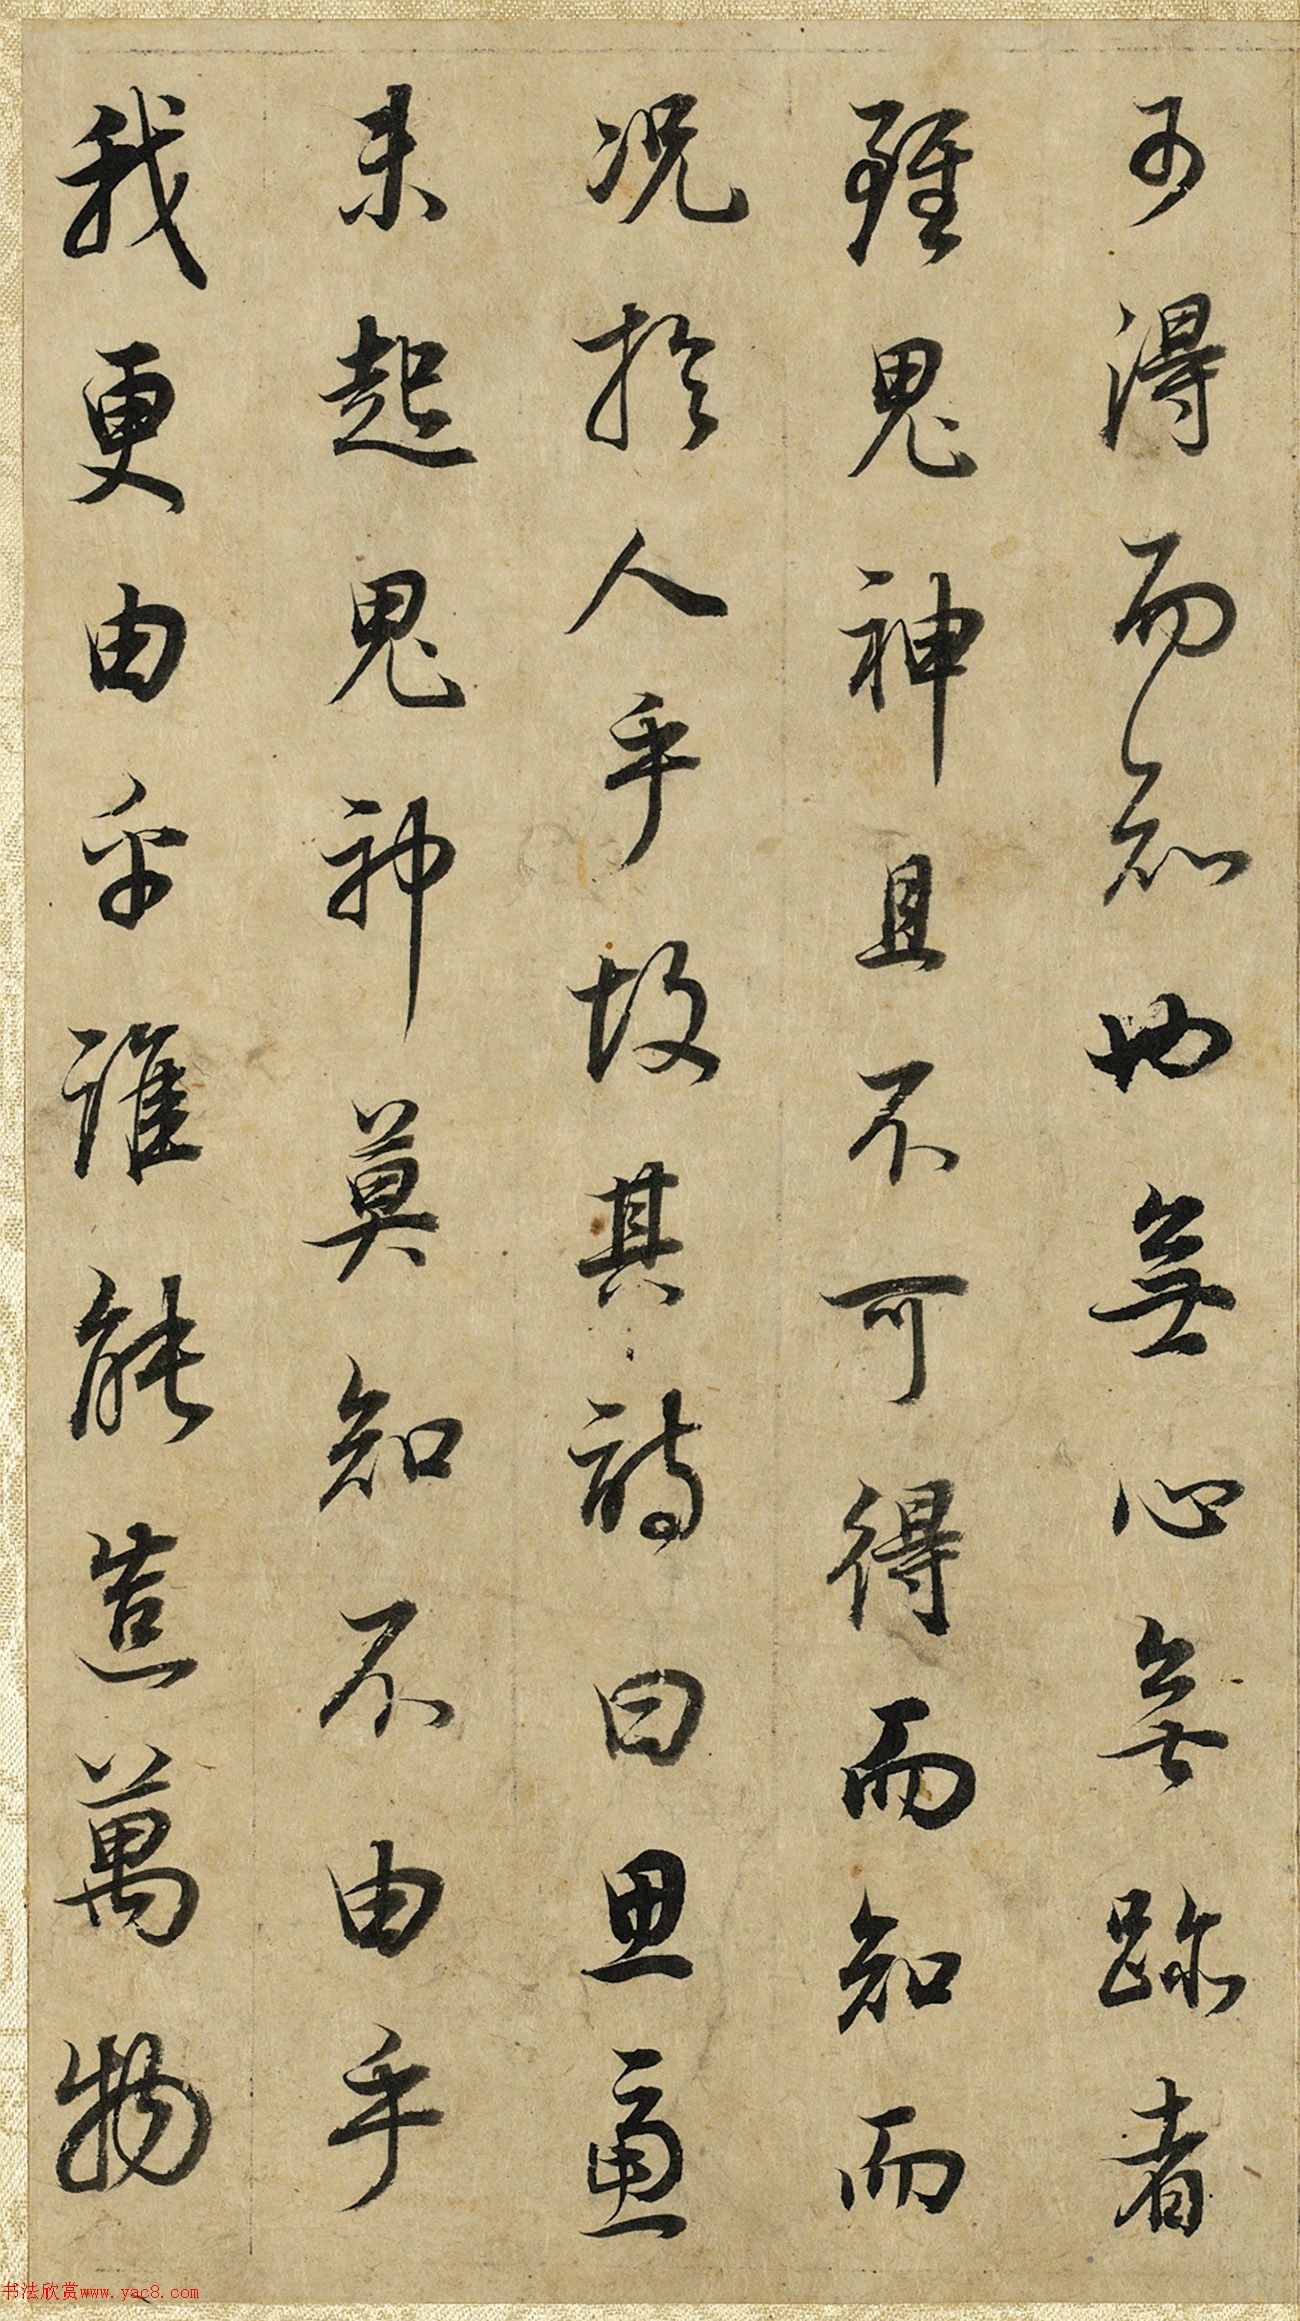 可得而知也無心無跡者
雖鬼神且不可得而知而
況於人乎故其詩曰思慮
未起鬼神莫知不由乎
我更由乎誰能造萬物
书法欣赏www.yac8.com